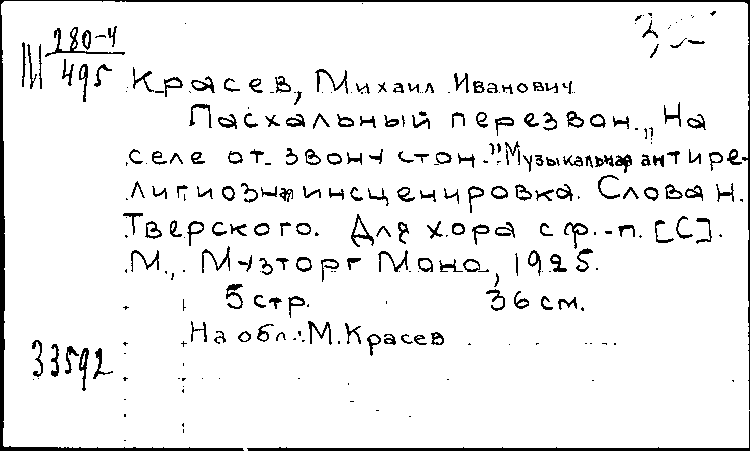 М 280-4
495
Красев, Михаил Иванович
Пасхальный перезвон. „На
селе от звону стон." Музыкальная антире-
лигиозная инсценировка. Слова Н.
Тверского. Для хора с ф.-п. [С].
М., Музторг Моно, 1925.
5 стр. 36 см.
На обл.: М. Красев
33592